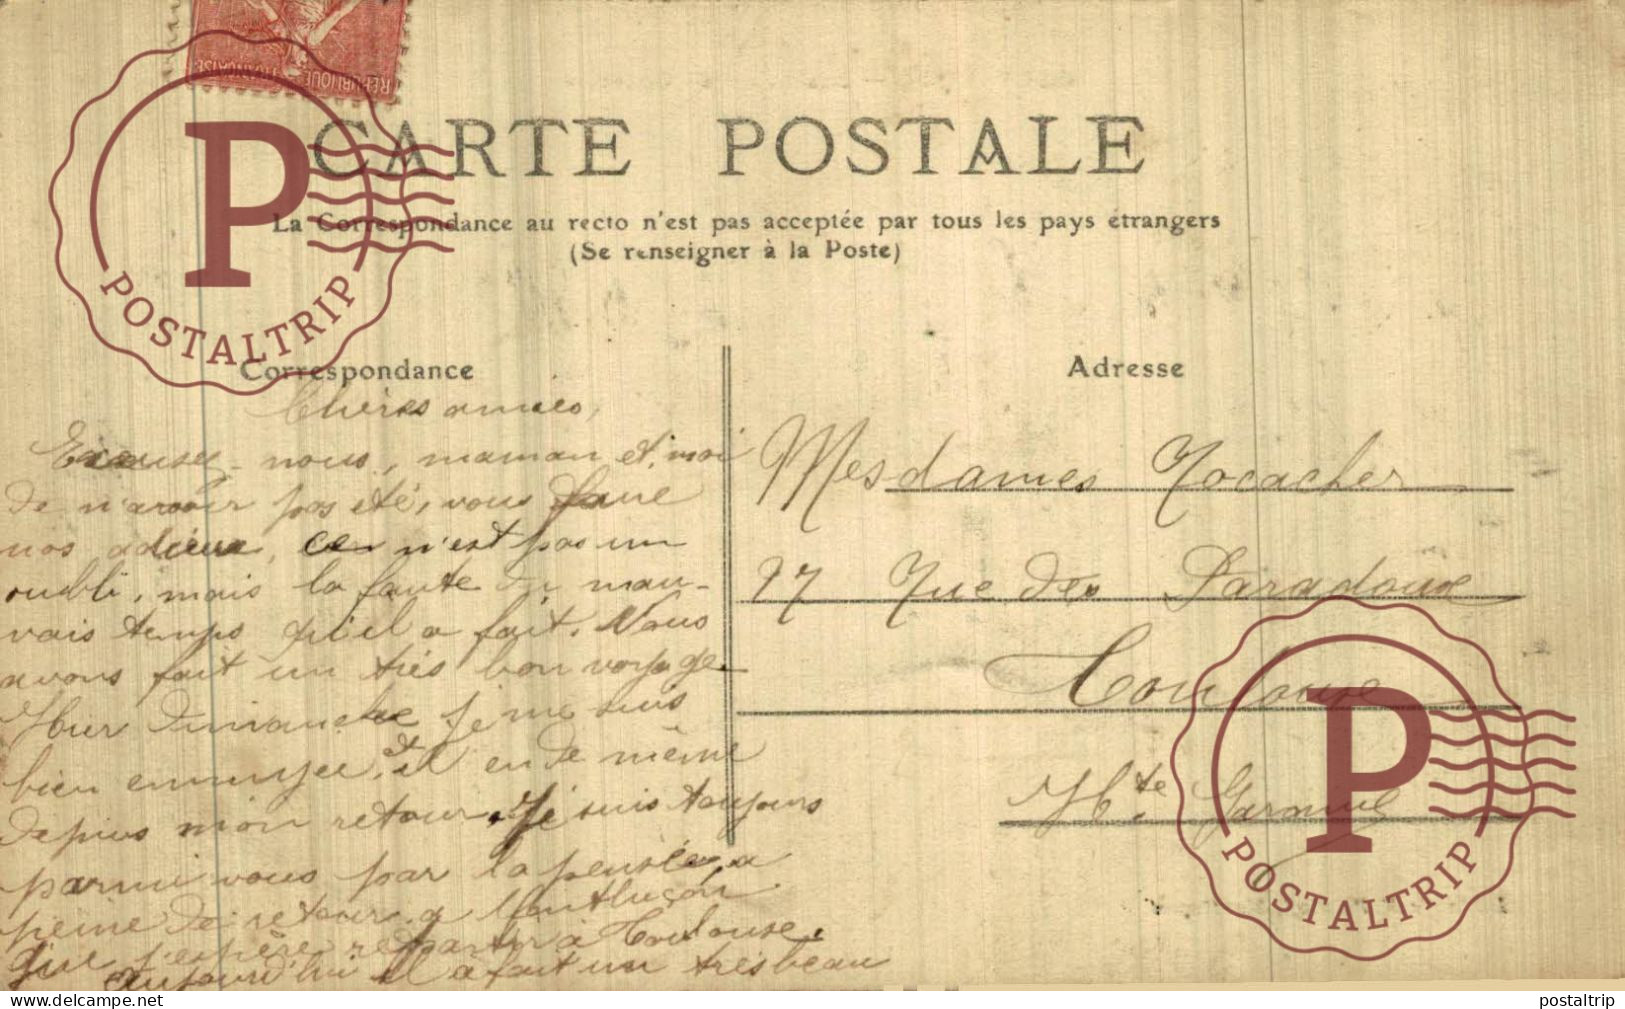 REPUBLIQUE FRANÇAISE
P
POSTALTRIP
CARTE POSTALE
La Correspondance au recto n'est pas acceptée par tous les pays étrangers
(Se renseigner à la Poste)
Correspondance
Chères amies,
Excusez-nous, maman et moi
de n'avoir pas été, vous faire
nos adieux, ce n'est pas un
oubli, mais la faute du mau-
vais temps qu'il a fait. Nous
avons fait un très bon voyage.
Hier Dimanche je me suis
bien ennuyée, et il en de même
depuis mon retour. Je suis toujours
parmi vous par la pensée, a
peine de retour a Montluçon
que j'espère repartir à Toulouse.
aujourd'hui il a fait un très beau
Adresse
Mesdames Tocacher
27 Rue des Paradoux
Toulouse
Hte Garonne
P
POSTALTRIP
www.delcampe.net
postaltrip